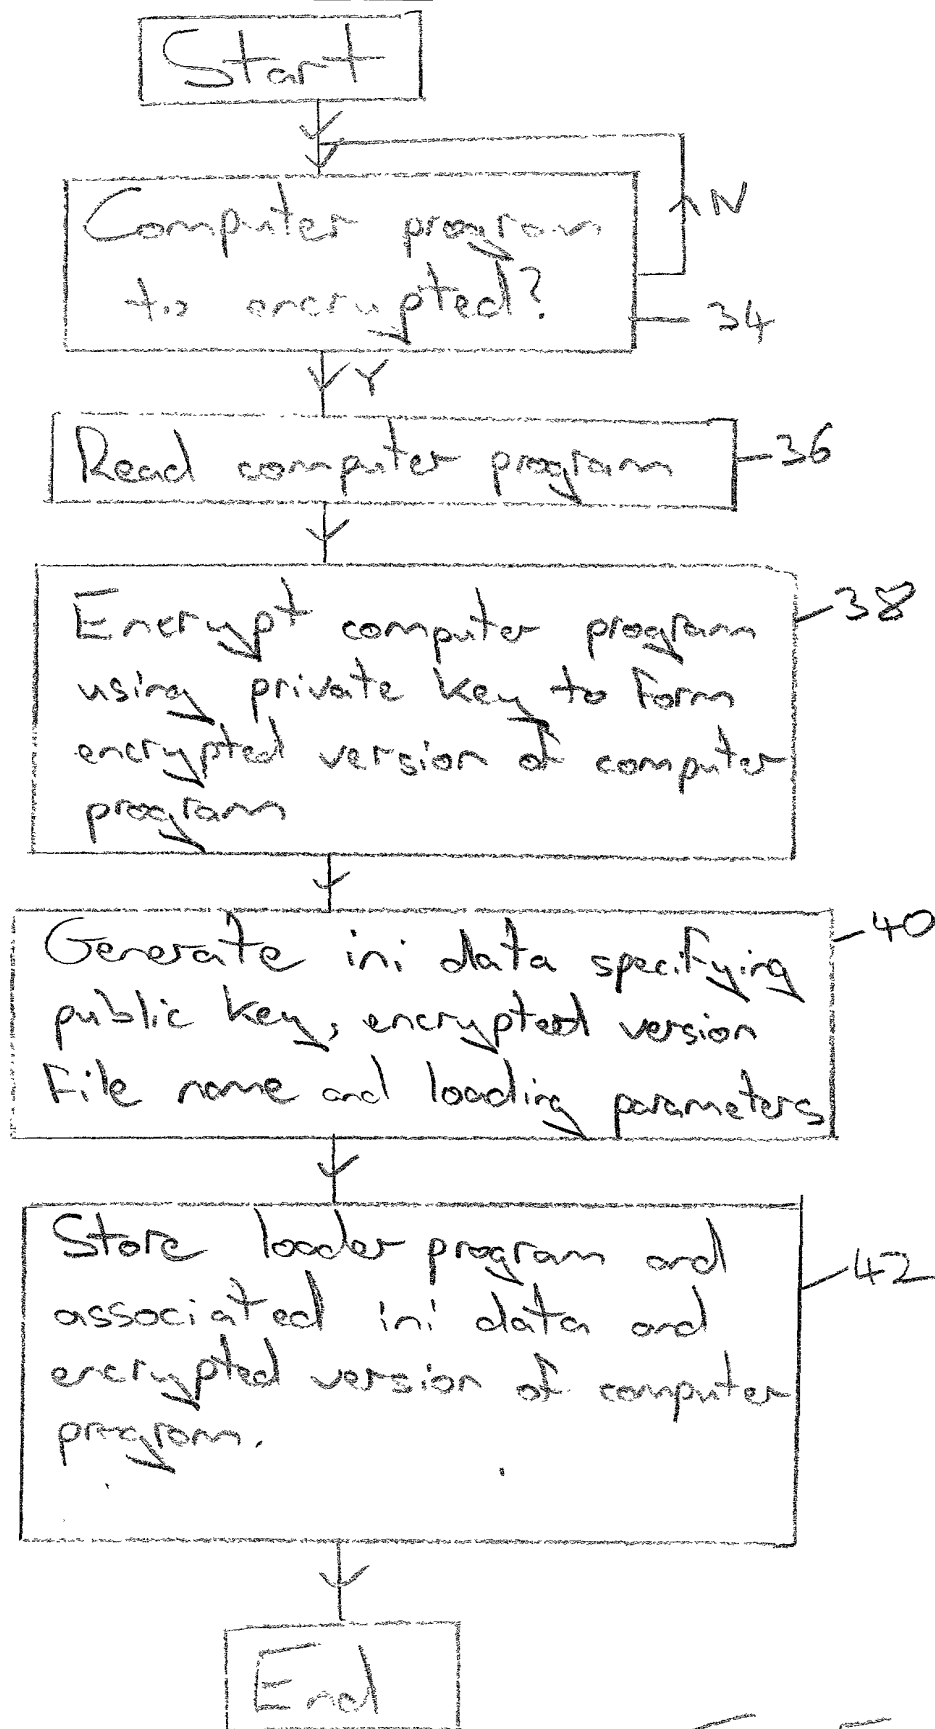 Start
N
Computer program
to encrypted?
34
Y
Read computer program
36
Encrypt computer program
using private key to form
encrypted version of computer
program
38
Generate ini data specifying
public key, encrypted version
file name and loading parameters
40
Store loader program and
associated ini data and
encrypted version of computer
program.
42
End